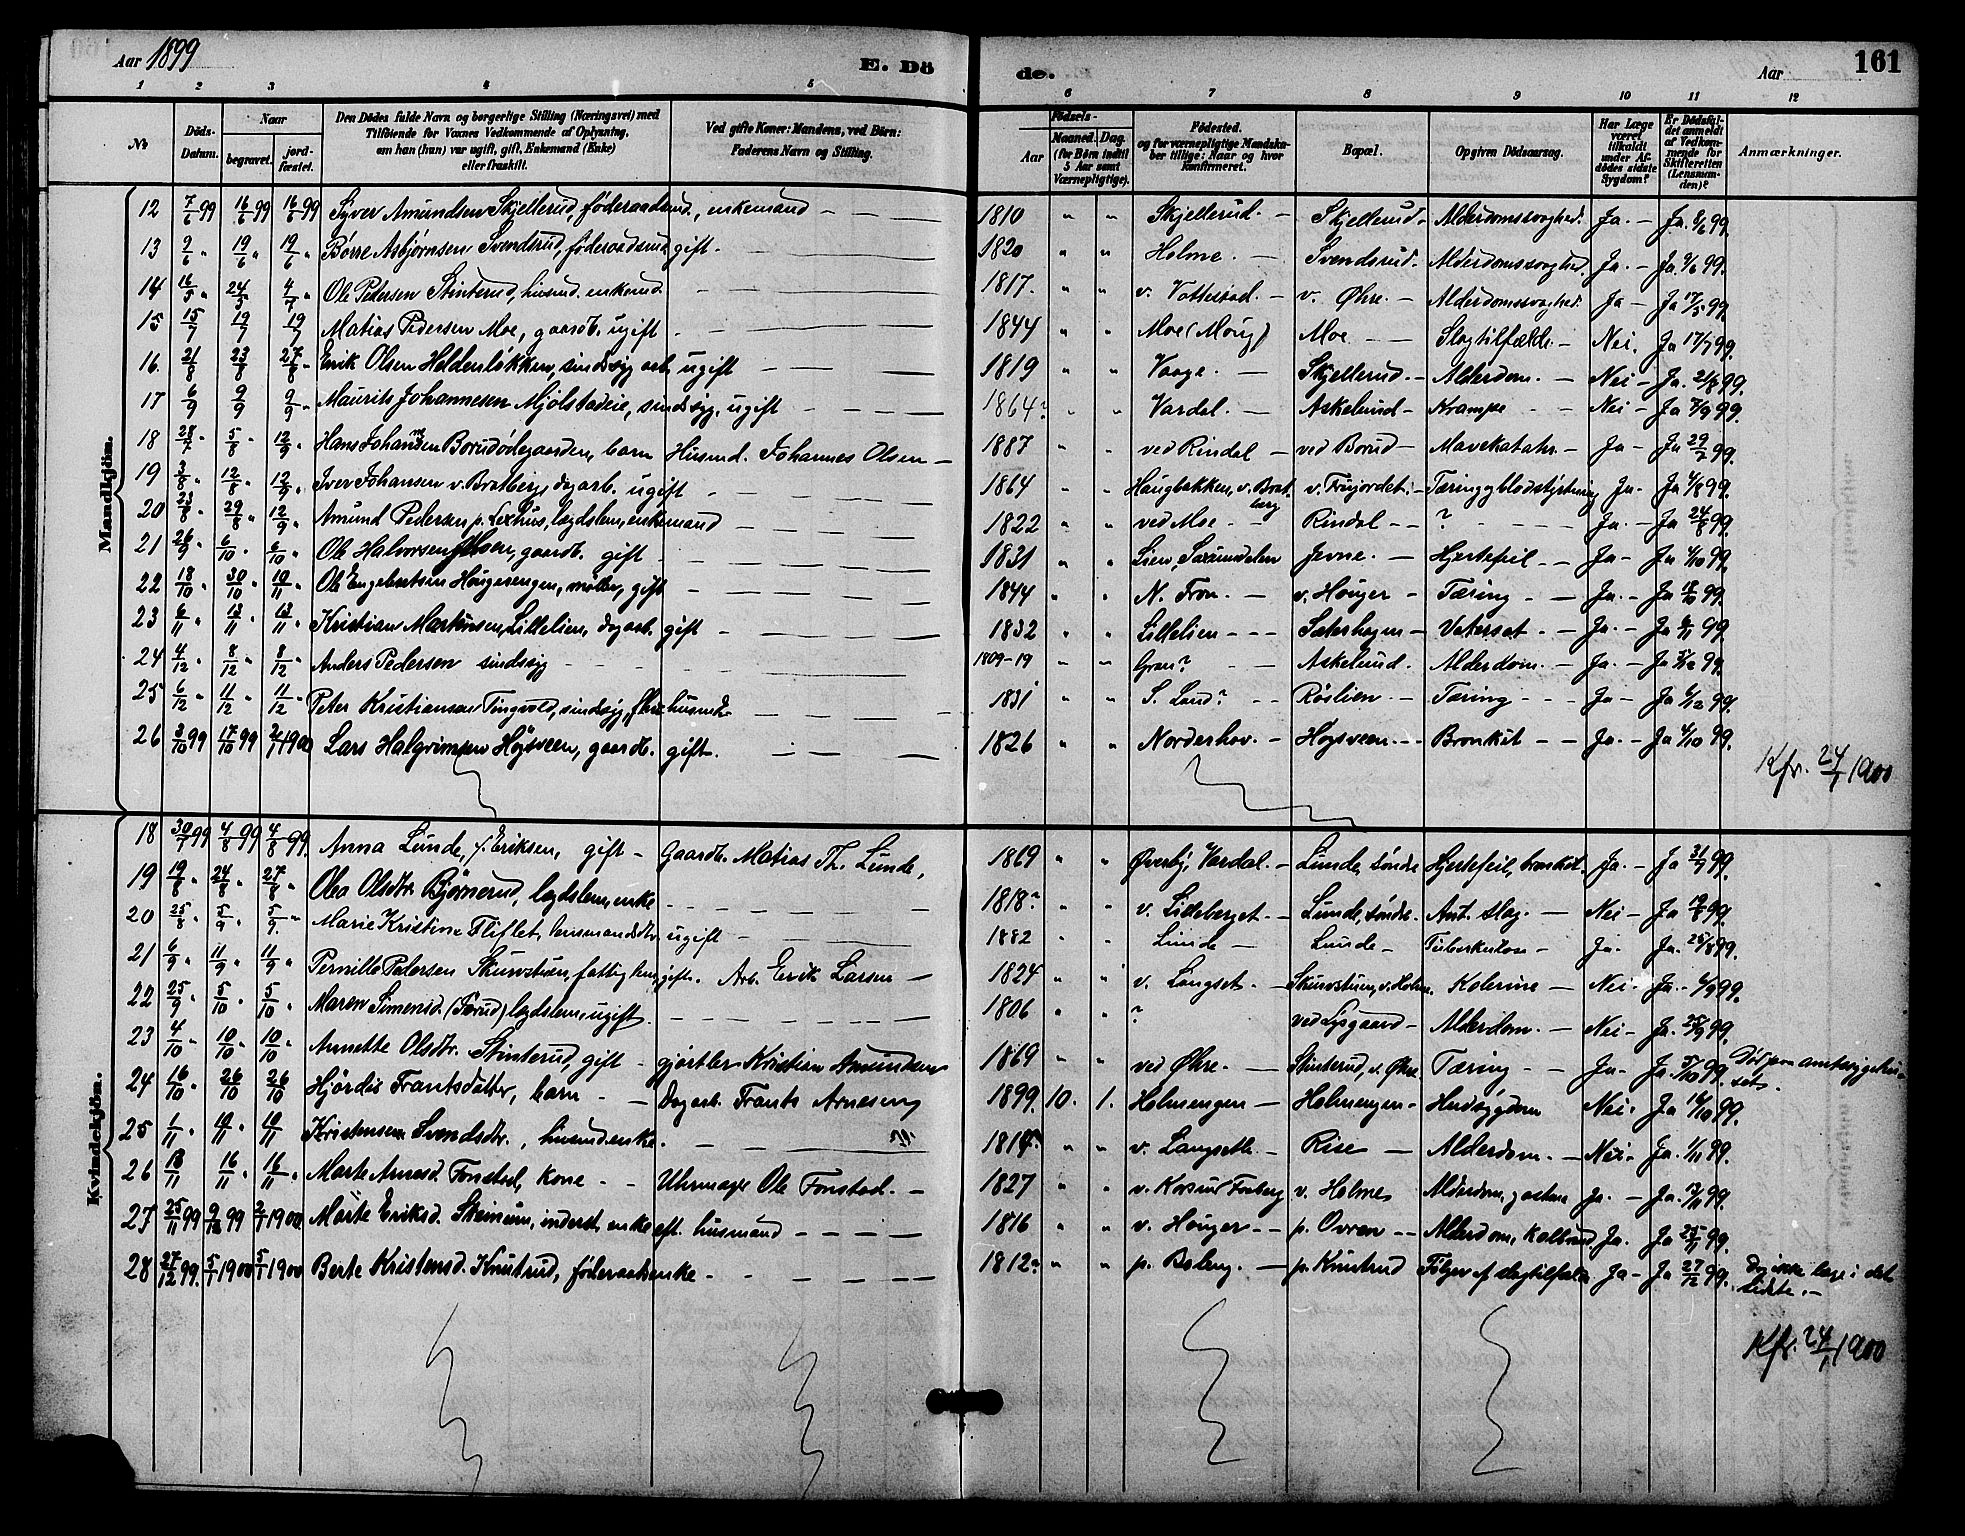 Aar 1899
E. Dö
de.
Aar
161
1 2 3 4 5 6 7 8 9 10 11 12
№
Döds-Datum.
Naar
begravet.
jordfæstet.
Den Dödes fulde Navn og borgerlige Stilling (Næringsvei) med Tilföiende for Voxnes Vedkommende af Oplysning, om han (hun) var ugift, gift, Enkemand (Enke) eller fraskilt.
Ved gifte Koner: Mandens, ved Börn: Faderens Navn og Stilling.
Födsels-
Aar
Maaned. Dag.
(for Börn indtil 5 Aar samt Værnepligtige).
Födested.
og for værnepligtige Mandskaber tillige: Naar og hvor konfirmeret.
Bopæl.
Opgiven Dödsaarsag.
Har Læge været tilkaldt under Afdödes sidste Sygdom?
Er Dödsfaldet anmeldt af Vedkommende for Skifteretten (Lensmanden)?
Anmærkninger.
Mandkjön.
12 7/6 99 16/6 99 16/6 99 Syver Amundsen Skjellerud, föderaadsmd., enkemand 1810 " " Skjellerud. Skjellerud Alderdomssvaghed. Ja. Ja. 99.
13 9/6 " 19/6 " 19/6 " Börre Asbjörnsen Svendsrud, föderaadsmd. gift. 1820 " " Holme. Svendsrud Alderdomssvaghed. Ja. Ja 9/6 99.
14 16/5 " 24/5 " 4/7 " Ole Pedersen Stinterud, husmd. enkemd. 1817. " " v. Vottestad. v. Øhre. Alderdomssvaghed. Ja Ja 17/5 99.
15 15/7 19/7 19/7 Matias Pedersen Moe, gaardb. ugift 1844 " " Moe (Moug) Moe Slagtilfælde Nei. Ja 17/7 99.
16. 21/8 23/8 27/8 Erik Olsen Heldenløkken, sindssyg arb. ugift 1819 " " Vaage. Skjellerud. Alderdom. Nei Ja. 99.
17 6/9 9/9 9/9 " Maurits Johannesen Mjölstadeie, sindssyg, ugift 1864? " " Vardal. Askelund Krampe Nei Ja 7/9 99.
18 28/7 5/8 " 12/9 " Hans Johansen Borudödegaarden, barn Husmd. Johannes Olsen 1887 " " ved Rindal ved Borud Mavekatahr. Ja Ja 29/7 99.
19 3/8 " 12/8 " 12/9 " Iver Johansen v. Bratberg, dagarb. ugift 1864 " " Haugbakken, v. Bratberg v. Frujordet. Tæring, blodstyrtning Ja Ja 4/8 99.
20 23/8 29/8 12/9 " Amund Pedersen p. Sexhus, lægdslem, enkemand 1822 " " ved Moe Rindal ? Ja. Ja 24/8 99.
21 26/9 6/10 " 6/10 " Ole Halvorsen Olsen, gaardb. gift 1831 " " Lien, Jevne. Hjertefeil Ja Ja 99.
22 18/10 30/10 19/11 Ole Engebretsen Høugersengen, møller, gift 1844 " " N. Fron. v. Høuger Tæring Ja. Ja 18/10 99.
23 6/11 13/11 13/11 Kristian Martinsen, Lillelien, dagarb. gift 1832 " " Lillelien Sæterhagen Vatersot. Ja. Ja 99.
24 4/12 8/12 8/12 " Anders Pedersen sindssyg 1809-19 " " Gran? Askelund. Alderdom. Ja. Ja 99.
25 6/12 " 11/12 " 11/12 " Peter Kristiansen Tingvold, sindssyg, husmd. 1831 " " S. Land? Röslien Tæring Ja Ja 6/12 99.
26 3/10 99 17/10 99 1900 Lars Halgrimsen Højsveen, gaardb. gift. 1826 " " Norderhov. Høgsveen Bronkit Ja. Ja 4/10 99.
Kfr. 24/1 1900
Kvindekjön.
18 30/7 99 4/8 99 4/8 99. Anna Lunde, f. Eriksen, gift Gaardb. Matias Th. Lunde, 1869 " " Øverby, Vardal. Lunde, söndre Hjertefeil, bronkit. Ja. Ja 31/7 99.
19 19/8 " 24/8 " 27/8 " Olea Olsdtr. Bjørnerud, lægdslem, enke 1818? " " v. Lilleberget. Lunde, söndr. Ant. slag. Nei Ja 19/8 99.
20 25/8 " 5/9 " 5/9 " Marie Kristine Fliflet, husmandsdtr. ugift 1882 " " Lunde Lunde Tuberkulose Ja. Ja. 25/8 99.
21 6/9 11/9 " 11/9 " Pernille Pedersen Skurvstuen, fattiglem, gift. Arb. Erik Larsen 1824 " " v. Langset. Skurvstuen, v. Holme. Kolerine Nei. Ja. 6/9 99.
22 25/9 5/10 5/10 Maren Simensd. (Forud) lægdslem, ugift. 1806 " " ? ved Lysgaard Alderdom. Nei Ja. 25/9 99.
23 4/10 10/10 10/10 " Annette Olsdtr. Stinterud, gift gjørtler Kristian Amundsen 1869 " " ved Øhre. Stinterud, v. Øhre. Tæring Ja Ja. 5/10 99. Död paa amtssygehuset.
24 16/10 26/10 26/10 Hjördis Frantsdatter, barn Dagarb. Frants Arnesen 1899. 10. 1. Holmsengen Holmsengen Hudsygdom Nei. Ja 16/10 99.
25 1/11 " 10/11 " 10/11 Kristense Svendsdtr., husmdsenke. 1814? " " v. Langsette. Rise Alderdom. Nei. Ja 1/11 99.
26 13/11 16/11 " 16/11 " Marte Arnesd. Fonstad, kone Uhrmager Ole Fonstad. 1827 " " v. Forberg v. Holmes Alderdom, Ja. Ja 13/11 99.
27 25/11 99 9/12 99 2/1 1900. Marte Eriksd. Steinum, inderst, enke eft. husmand 1816 " " v. Høuger p. Ovren Alderdom, Koldbrand Ja. Ja 25/11 99.
28 27/12 99. 5/1 1900 5/1 1900 Berte Kristensd. Knutrud, föderaadsenke. 1812? " " p. Boleng. p. Knutrud Fölger af slagtilfælde Ja Ja 27/12 99. Dog ikke læge i det sidste.
Kfr. 24/1 1900